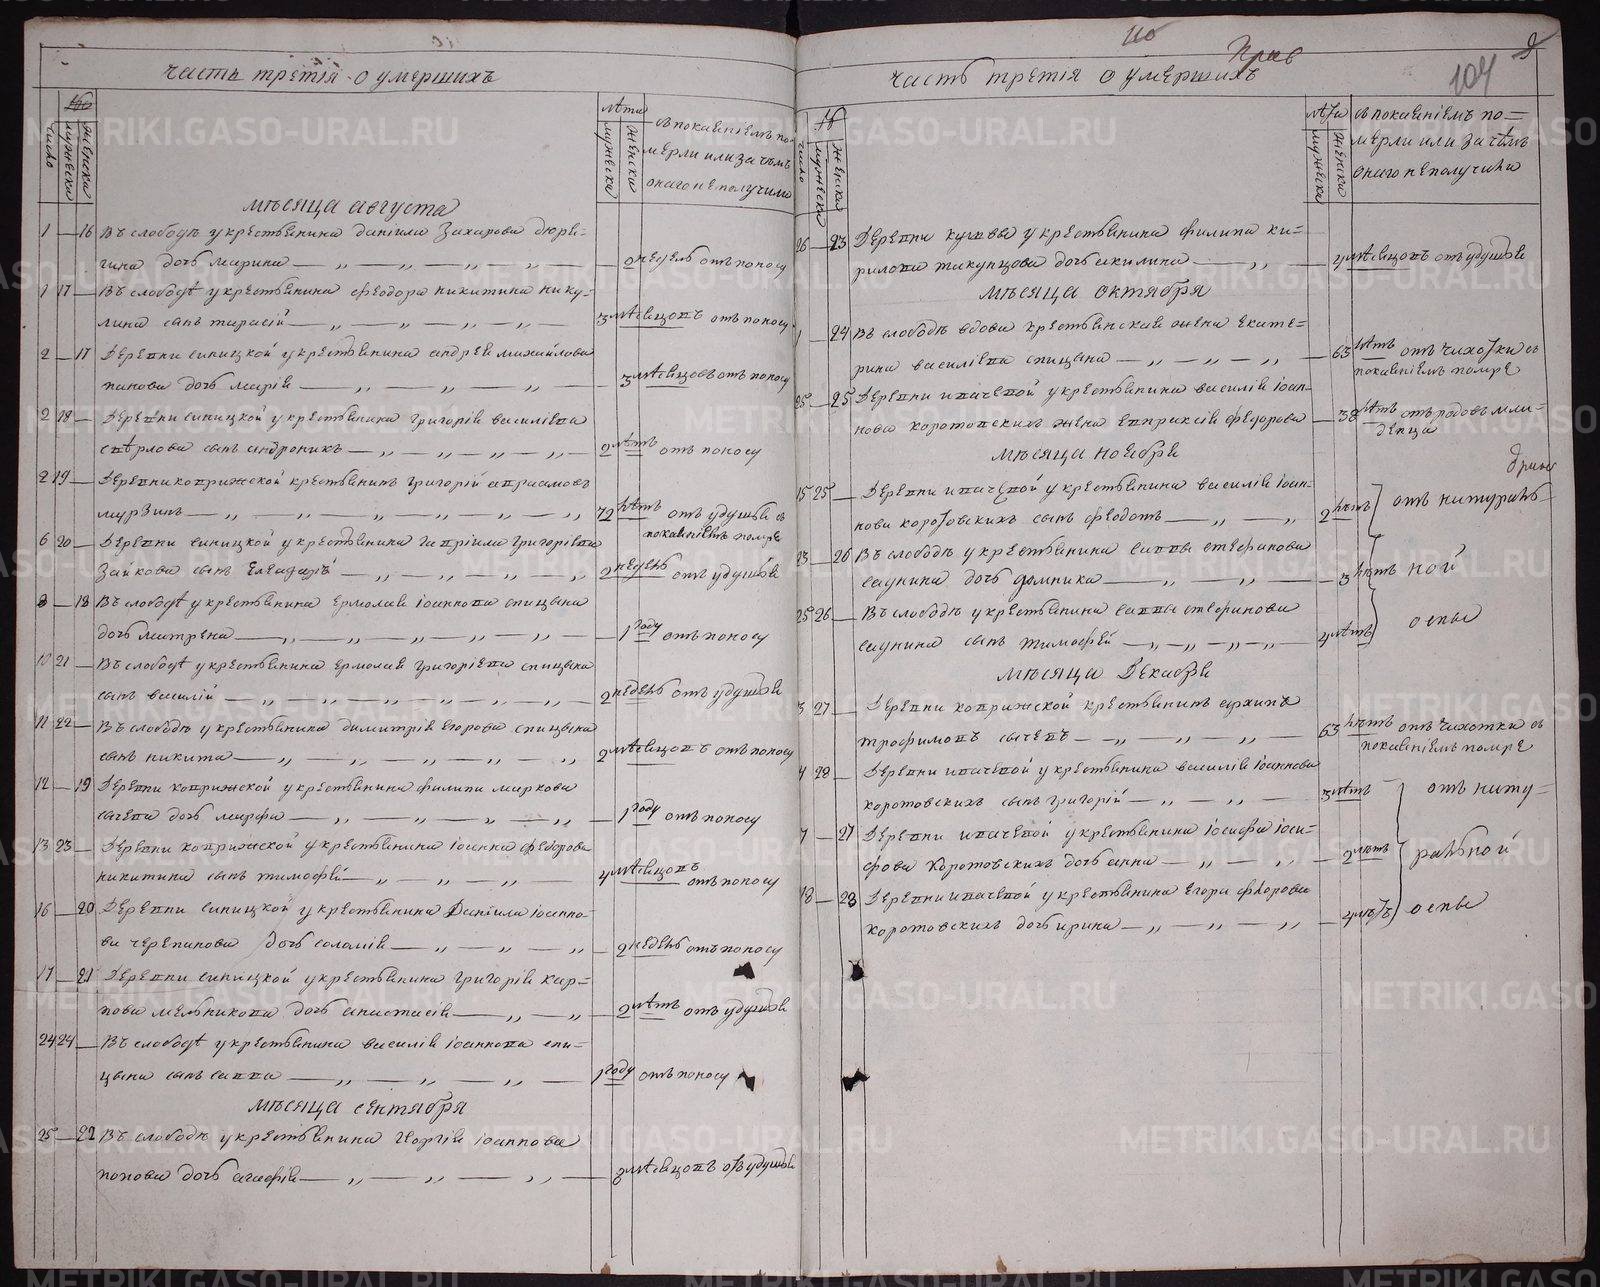 часть третія о умершихъ
число
мужеска
женска
лѣта
мужеска
женска
съ покаяніемъ по-
мерли или за чѣмъ
онаго не получили
мѣсяца августа
1 — 16 Въ слободѣ у крестьянина даніила Захарова
дочь марина — недель отъ поносу
1 17 — Въ слободѣ у крестьянина феодора никитина нику-
лина сынъ тарасій — 3 мѣсяцовъ отъ поносу
2 — 17 Деревни синицкой у крестьянина андрея михайлова
попова дочь марія — 3 мѣсяцовъ отъ поносу
2 18 — Деревни синицкой у крестьянина григорія василіева
сынъ андроникъ — 2 лѣтъ отъ поносу
2 19 — Деревни коврижской крестьянинъ григорій авраамовъ
мурзинъ — 72 лѣтъ отъ удушья съ
покаяніемъ помре
6 20 — Деревни синицкой у крестьянина гавріила григоріева
Зайкова сынъ — 2 недель отъ удушья
8 — 18 Въ слободѣ у крестьянина ермолая іоаннова спицына
дочь матрена — 1 году отъ поносу
10 21 — Въ слободѣ у крестьянина ермолая григоріева спицына
сынъ василій — 2 недель отъ удушья
11 22 — Въ слободѣ у крестьянина димитрія егорова спицына
сынъ никита — 2 мѣсяцовъ отъ поносу
12 — 19 Деревни коврижской у крестьянина филипа маркова
сычева дочь марфа — 1 году отъ поносу
13 23 — Деревни коврижской у крестьянина іоанна федорова
никитина сынъ тимофей — 4 мѣсяцовъ
отъ поносу
16 — 20 Деревни синицкой у крестьянина Даніила іоанно-
ва черепанова дочь соломія — 2 недель отъ поносу
17 — 21 Деревни синицкой у крестьянина григорія кар-
пова мельникова дочь анастасія — 2 лѣтъ отъ удушья
24 24 — Въ слободѣ у крестьянина василія іоаннова спи-
цына сынъ савва — 1 году отъ поносу
мѣсяца сентября
25 — 22 Въ слободѣ у крестьянина георгія іоаннова
попова дочь агафія — мѣсяцовъ отъ удушья
Прав
107
часть третія о умершихъ
число
мужеска
женска
лѣта
мужеска
женска
съ покаяніемъ по-
мерли или за чѣмъ
онаго не получили
26 — 23 Деревни у крестьянина филипа ки-
рилова такунцова дочь акилина — 4 мѣсяцовъ отъ удушья
мѣсяца октября
1 — 24 Въ слободѣ вдова крестьянская жена екате-
рина василіева спицына — 63 лѣтъ отъ чихотки съ
покаяніемъ помре
25 — 25 Деревни ипачевой у крестьянина василія іоан-
нова коротовскихъ жена евпраксія федорова — 38 лѣтъ отъ родовъ мла-
денца
мѣсяца ноября
15 25 — Деревни ипачевой у крестьянина василія іоан-
нова коротовскихъ сынъ феодотъ — 2 лѣтъ отъ натураль-
23 — 26 Въ слободѣ у крестьянина саввы стефанова
саунина дочь домника — 3 лѣтъ ной
25 26 — Въ слободѣ у крестьянина саввы стефанова
саунина сынъ тимофей — 4 лѣтъ оспы
мѣсяца Декабря
3 27 — Деревни коврижской крестьянинъ архипъ
трофимовъ сычевъ — 63 лѣтъ отъ чихотки съ
покаяніемъ помре
4 28 — Деревни ипачевой у крестьянина василія іоаннова
коротовскихъ сынъ григорій — 3 лѣтъ отъ нату-
7 — 27 Деревни ипачевой у крестьянина іосифа іоси-
фова коротовскихъ дочь анна — 2 лѣтъ ральной
18 — 28 Деревни ипачевой у крестьянина егора федорова
коротовскихъ дочь ирина — 4 лѣтъ оспы
METRIKI.GASO-URAL.RU